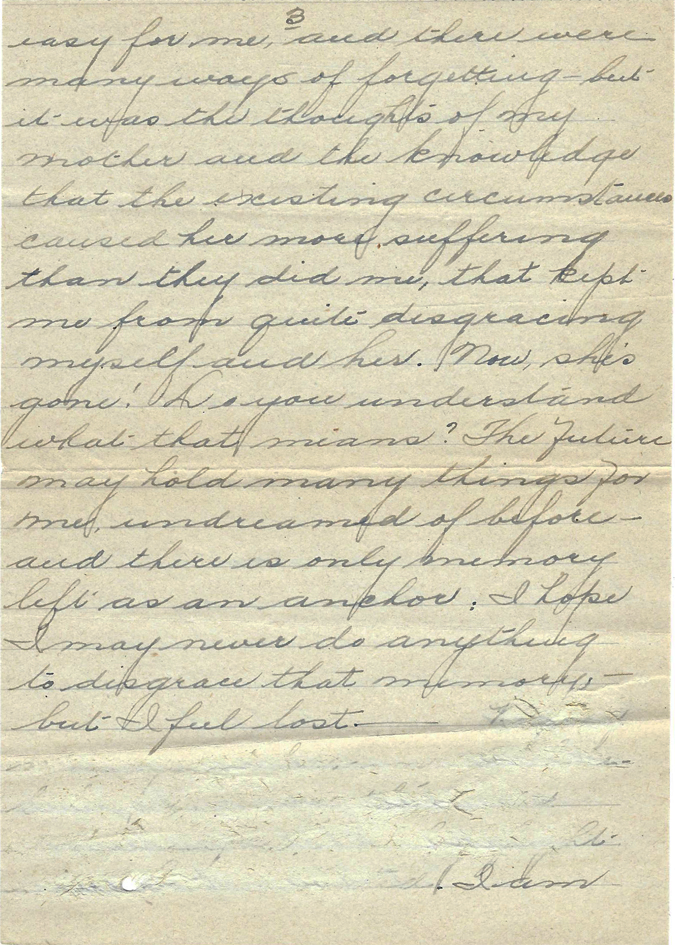 3
easy for me, and there were
many ways of forgetting – but
it was the thoughts of my
mother and the knowledge
that the existing circumstances
caused her more suffering
than they did me, that kept
me from quite disgracing
myself and her. Now, she's
gone! Do you understand
what that means? The future
may hold many things for
me, undreamed of before –
and there is only memory
left as an anchor. I hope
I may never do anything
to disgrace that memory, –
but I feel lost. —
I am